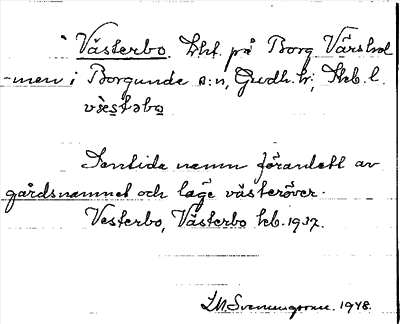 Västerbo. Lht. på Borg Vårshol
-men i Borgunda s:n, Gudh. hr; Skb. l.
væstəbo
Sentida namn föranlett av
gårdsnamnet och läge västeröver.
Vesterbo, Västerbo kb. 1937.
1948.